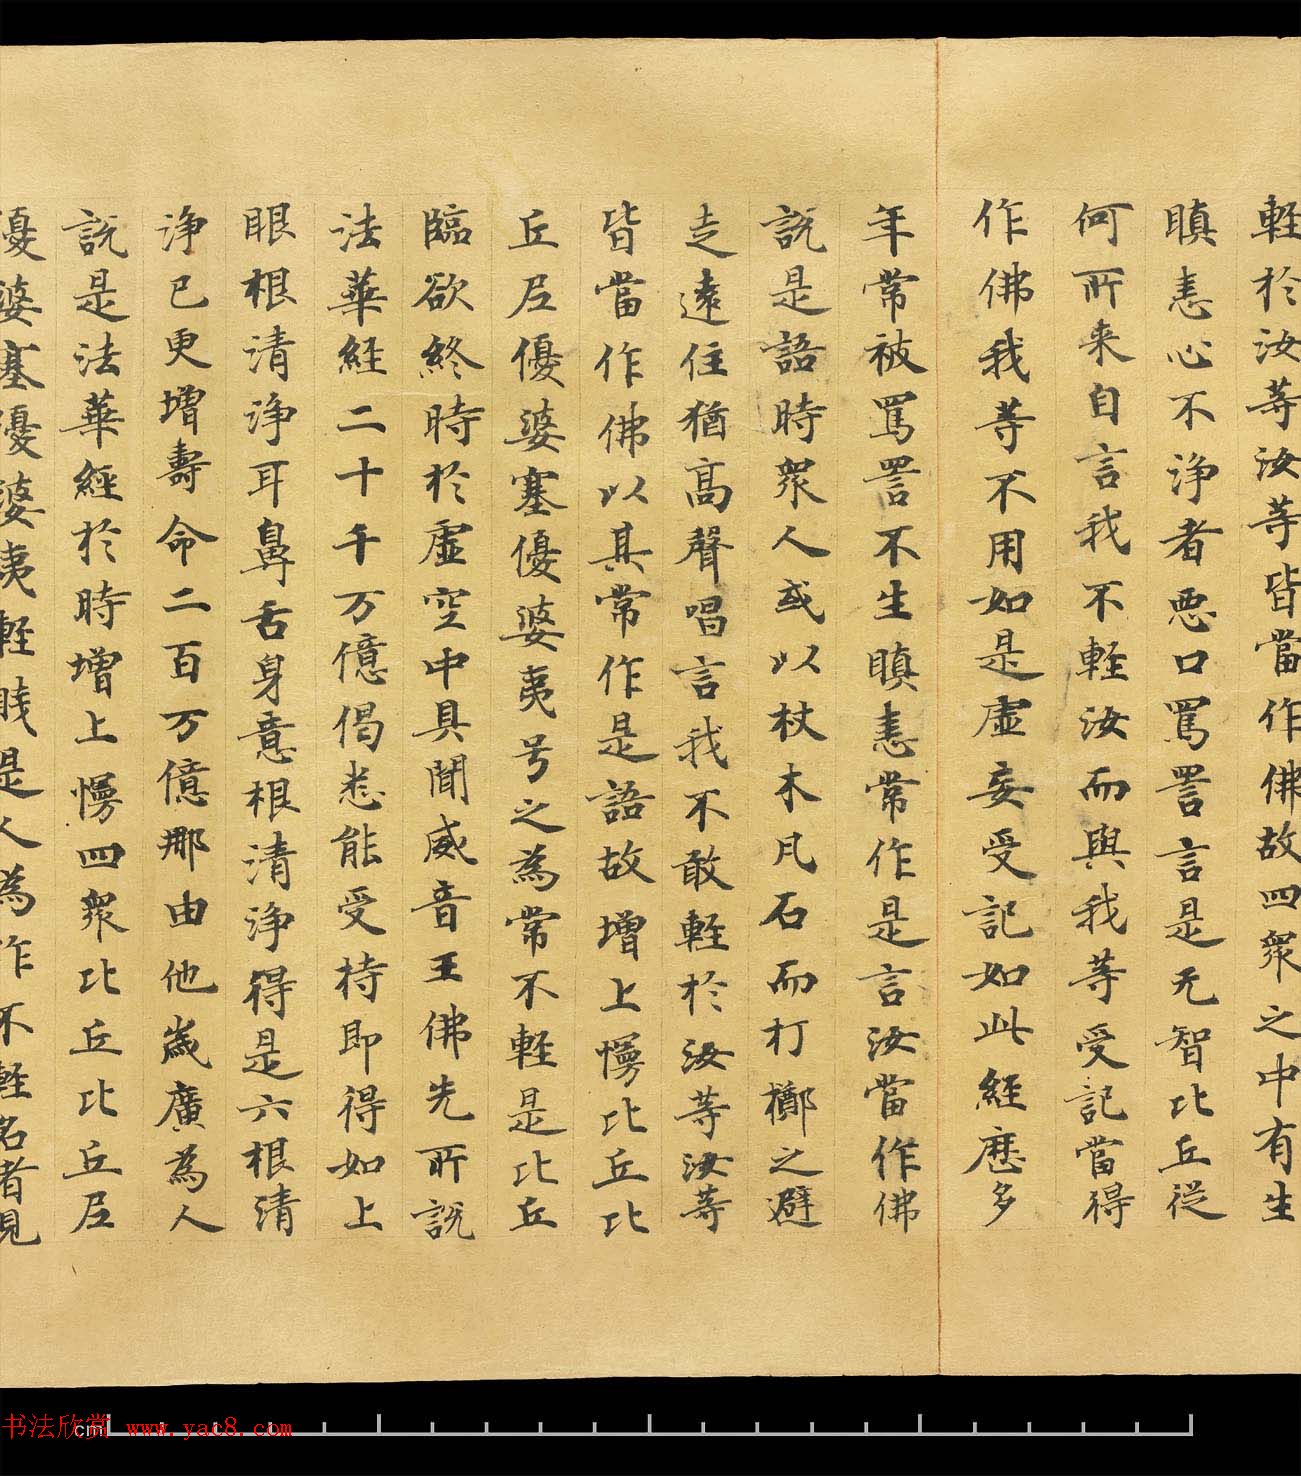 輕於汝等汝等皆當作佛故四衆之中有生
瞋恚心不淨者惡口罵詈言是无智比丘從
何所来自言我不輕汝而與我等受記當得
作佛我等不用如是虛妄受記如此經歷多
年常被罵詈不生瞋恚常作是言汝當作佛
說是語時衆人或以杖木瓦石而打擲之避
走遠住猶高聲唱言我不敢輕於汝等汝等
皆當作佛以其常作是語故增上慢比丘比
丘尼優婆塞優婆夷号之為常不輕是比丘
臨欲終時於虛空中具聞威音王佛先所說
法華經二十千万億偈悉能受持即得如上
眼根清淨耳鼻舌身意根清淨得是六根清
淨已更增壽命二百万億那由他歲廣為人
說是法華經於時增上慢四衆比丘比丘尼
優婆塞優婆夷輕賤是人為作不輕名者見
书法欣赏 www.yac8.com
cm